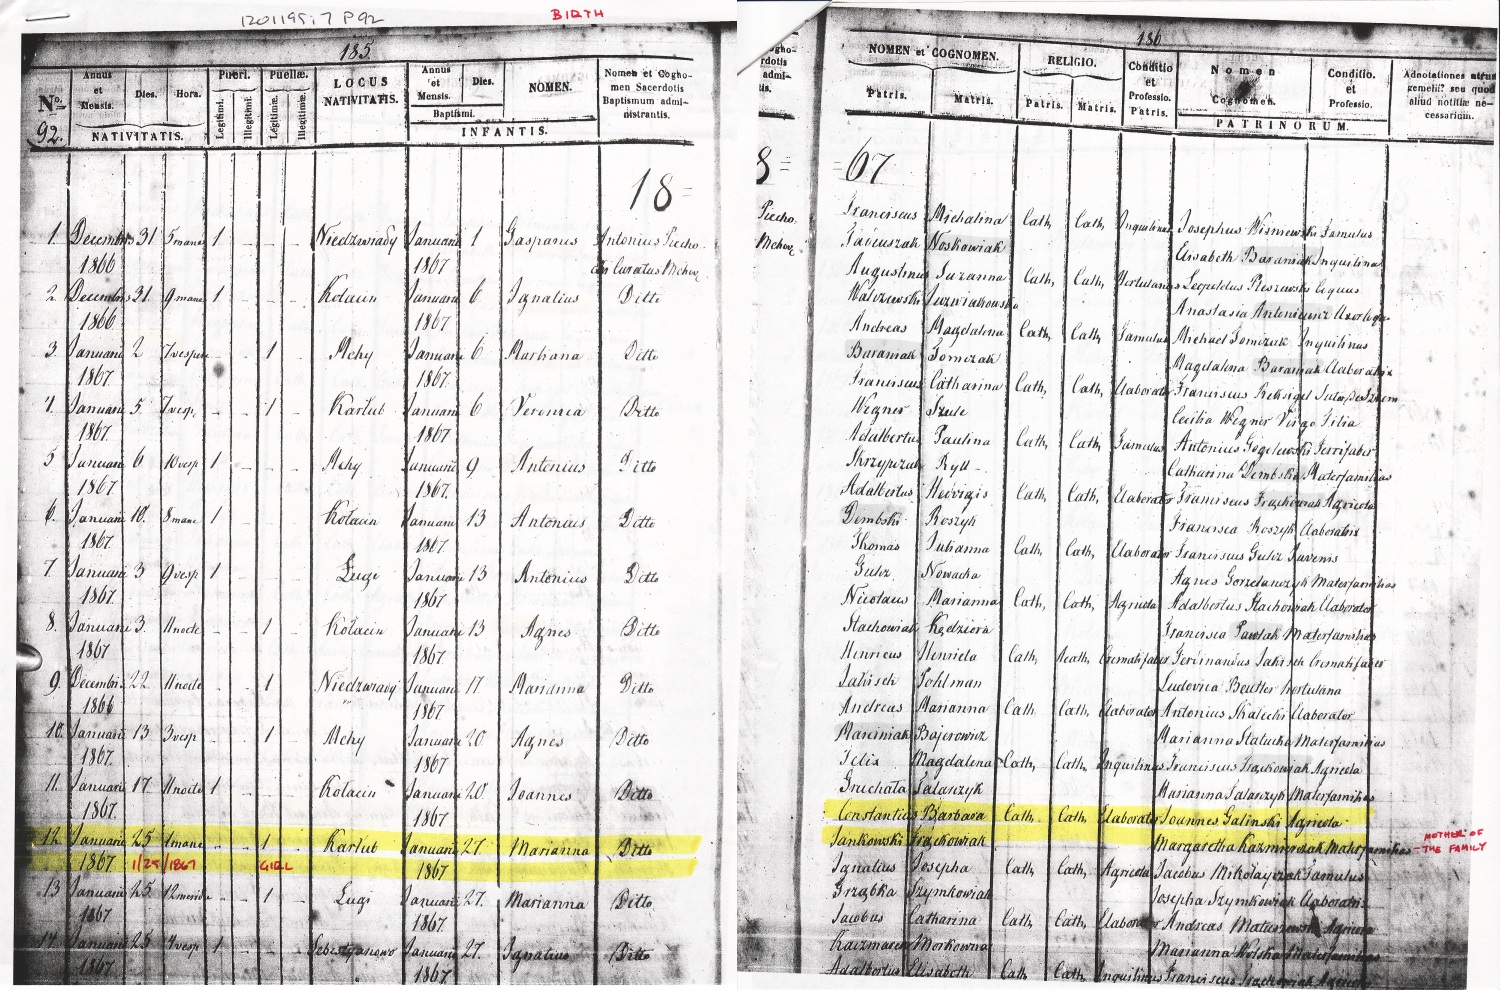 1201195:7 P 92
BIRTH
185.
No. Annus et Mensis. Dies. Hora. Pueri. Puellæ. LOCUS NATIVITATIS. Annus et Mensis. Dies. NOMEN. Nomen et Cognomen Sacerdotis Baptismum administrantis.
92. NATIVITATIS. Legitimi. Illegitimi. Legitimæ. Illegitimæ. Baptismi. INFANTIS.
18=
1. Decembris 31 5 mane 1 Niedzwiady Januarii 1 Gasparus Antonius Piecho-
1866 1867 Curatus Mchy
2. Decembris 31. 9 mane 1 Kołacin Januarii 6 Ignatius Ditto
1866 1867
3. Januarii 2 7 vespere 1 Mchy Januarii 6 Marianna Ditto
1867. 1867.
4. Januarii 5. 7 vesp. 1 Karlub Januarii 6 Veronica Ditto
1867. 1867.
5 Januarii 6 10 vesp 1 Mchy Januarii 9 Antonius Ditto
1867 1867.
6. Januarii 10. 8 mane 1 Kołacin Januarii 13 Antonius Ditto
1867. 1867.
7 Januarii 3 9 vesp 1 Ługi Januarii 13 Antonius Ditto
1867. 1867
8. Januarii 3. 11 nocte 1 Kołacin Januarii 13 Agnes Ditto
1867 1867.
9. Decembris 22. 11 nocte 1 Niedzwiady Januarii 17 Marianna Ditto
1866 1867
10. Januarii 13 3 vesp 1 Mchy Januarii 20 Agnes Ditto
1867. 1867
11. Januarii 17 11 nocte 1 Kołacin Januarii 20 Joannes Ditto
1867. 1867
12. Januarii 25 1 mane 1 Karlub Januarii 27 Marianna Ditto
1867 1/25/1867 GIRL 1867
13 Januarii 25. 12 meridie 1 Ługi Januarii 27. Marianna Ditto
1867 1867
14. Januarii 25 4 vesp 1 Sebestyanowo Januarii 27. Ignatius Ditto
1867 1867.
186
NOMEN et COGNOMEN. RELIGIO. Conditio et Professio. Patris. Nomen et Cognomen. Conditio. et Professio. Adnotationes utrum gemelli? seu quod aliud notitiæ necessarium.
Patris. Matris. Patris. Matris. PATRINORUM.
8= =67
Franciscus Michalina Cath. Cath. Inquilinus Josephus Wisniewski Famulus
Noskowiak Elisabeth Baraniak Inquilina
Augustinus Suzanna Cath. Cath. Hortulanus
Anastasia
Andreas Magdalena Cath. Cath. Famulus Michael Tomczak Inquilinus
Baraniak Tomczak Magdalena Baraniak Elaboratrix
Franciscus Catharina Cath. Cath. Elaborator Franciscus
Wegner Szulc Cecilia Wegner Virgo Filia
Adalbertus Paulina Cath. Cath. Famulus Antonius Gogolewski Ferrifaber
Ryll Catharina Dembska Materfamilias
Adalbertus Hedvigis Cath. Cath. Elaborator Franciscus Frąckowiak Agricola
Dembski Roszyk Francisca Roszyk Elaboratrix
Thomas Julianna Cath. Cath. Elaborator Franciscus
Nowacka Agnes Gorzelanczyk Materfamilias
Nicolaus Marianna Cath. Cath. Agricola Adalbertus Stachowiak Elaborator
Stachowiak Kędziora Francisca Pawlak Materfamilias
Henricus Henrieta Cath. Cath. Ferdinandus Jakisch
Jakisch Pohlman Ludovica Beutler hortulana
Andreas Marianna Cath. Cath. Elaborator Antonius Skałecki Elaborator
Marciniak Bajerowicz Marianna Materfamilias
Felix Magdalena Cath. Cath. Inquilinus Franciscus Frąckowiak Agricola
Ratajczyk Marianna Ratajczyk Materfamilias
Constantius Barbara Cath. Cath. Elaborator Joannes Galinski Agricola
Jankowski Frąckowiak Margaretha Kazmierczak Materfamilias
MOTHER OF THE FAMILY
Ignatius Josepha Cath. Cath. Agricola Jacobus Mikołajczak Famulus
Grząbka Szymkowiak Josepha Szymkowiak Elaboratrix
Jacobus Catharina Cath. Cath. Elaborator Andreas Agricola
Kaczmarek Marianna Wolska Materfamilias
Adalbertus Elisabeth Cath. Cath. Inquilinus Franciscus Frąckowiak Agricola